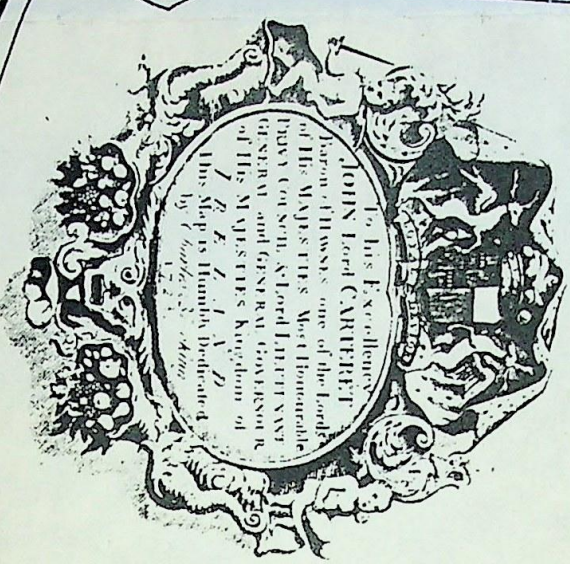 To his Excellency
JOHN Lord CARTERET
Baron of HAWNES one of the Lords
of His MAJESTIES Most Honourable
PRIVY COUNCIL, & Lord LIEUTENANT
GENERAL and GENERAL GOVERNOUR
of His MAJESTIES Kingdom of
IRELAND
This Map is Humbly Dedicated
by Charles